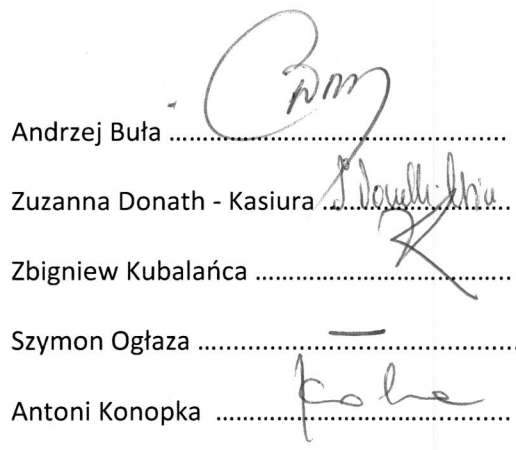 Andrzej Buła ......................................................
Zuzanna Donath - Kasiura ..............................
Zbigniew Kubalańca ..........................................
Szymon Ogłaza ....................................................
Antoni Konopka ................................................